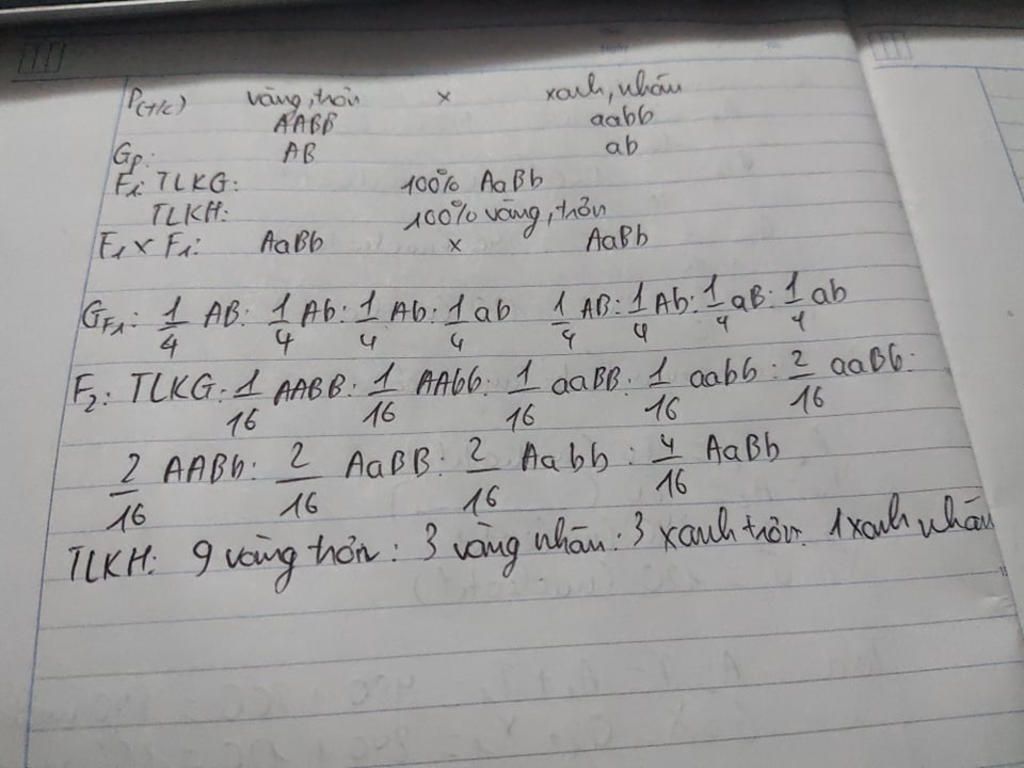 P(t/c) vàng, trơn x xanh, nhăn
AABB aabb
Gp: AB ab
F1: TLKG: 100% AaBb
TLKH: 100% vàng, trơn
F1 x F1: AaBb x AaBb
GF1: 1/4 AB: 1/4 Ab: 1/4 Ab: 1/4 ab 1/4 AB: 1/4 Ab: 1/4 aB: 1/4 ab
F2: TLKG: 1/16 AABB: 1/16 AAbb: 1/16 aaBB: 1/16 aabb: 2/16 aaBb:
2/16 AABb: 2/16 AaBB: 2/16 Aabb: 4/16 AaBb
TLKH: 9 vàng trơn: 3 vàng nhăn: 3 xanh trơn: 1 xanh nhăn